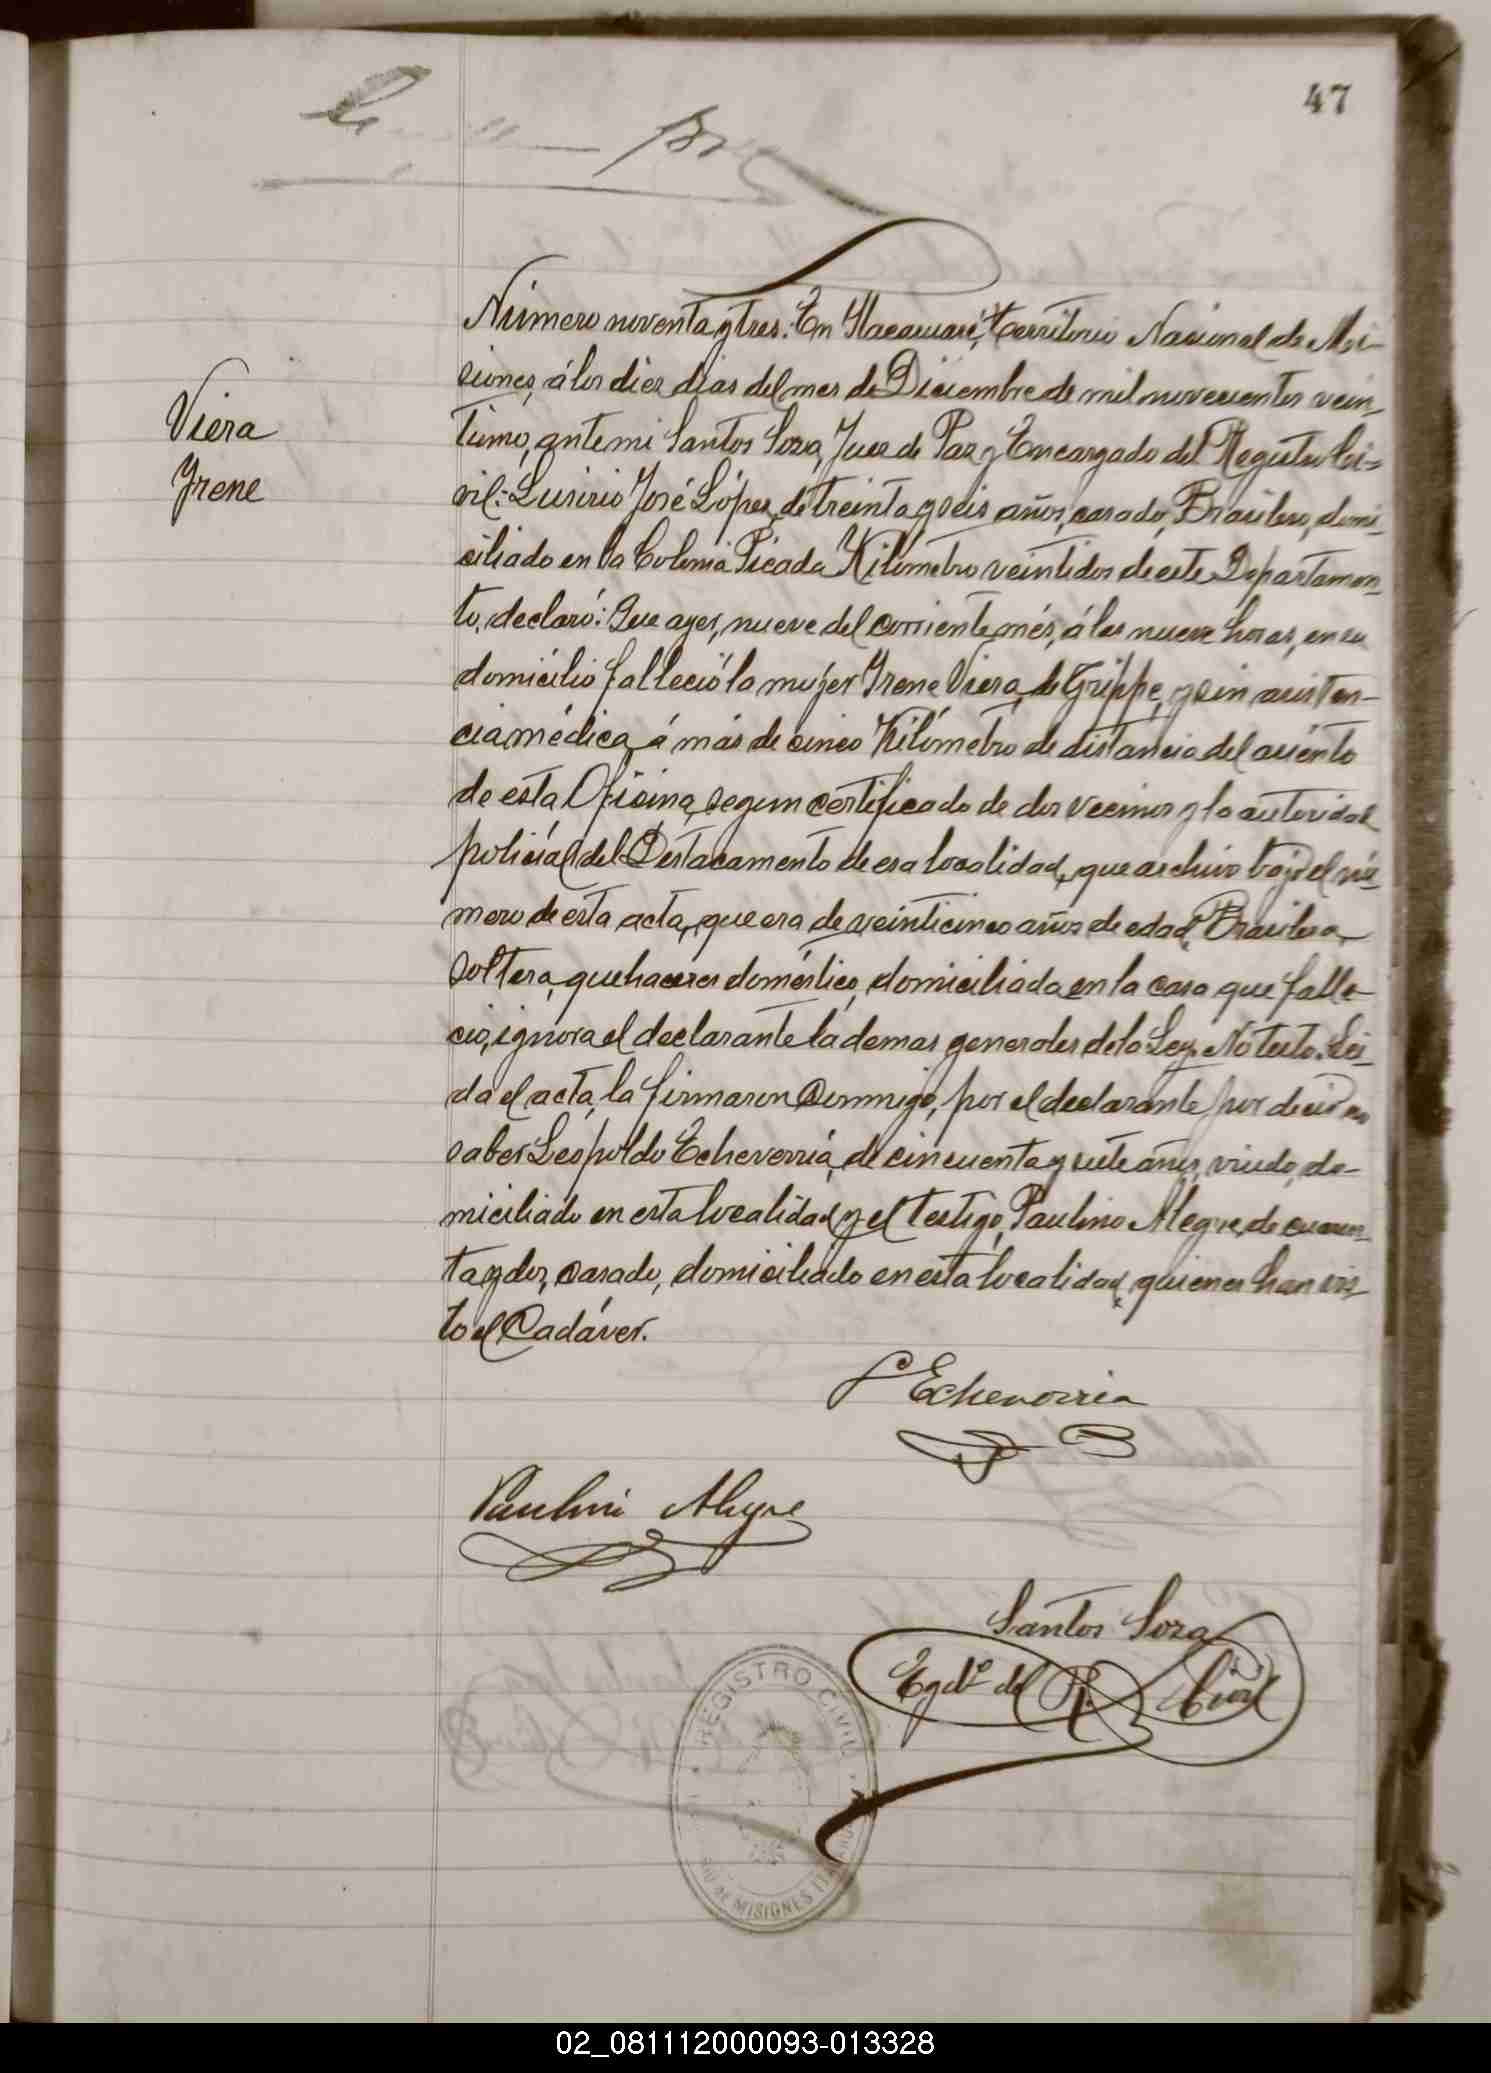 47
Número noventa y tres: En Itacaruaré, Territorio Nacional de Mi-
siones, á los diez dias del mes de Diciembre de mil novecientos vein-
Viera
tiuno, ante mi Santos Soza, Juez de Paz y Encargado del Registro Ci-
Irene
vil: Lusirio José López, de treinta y seis años, casado, Brasilero, domi-
ciliado en la Colonia Picada Kilómetro veintidos de este Departamen-
to, declaró: Que ayer, nueve del corriente més, á las nueve horas, en su
domicilio falleció la mujer Irene Viera, de Grippe, y sin asisten-
cia médica, á más de cinco Kilómetro de distancia del asiento
de esta Oficina, segun certificado de dos vecinos y la autoridad
policial del Destacamento de esa localidad, que archivo bajo el nú-
mero de esta acta, que era de veinticinco años de edad, Brasilera,
soltera, quehaceres doméstico, domiciliada en la casa que falle-
cio, ignora el declarante la demas generales de la Ley. No testo. Leí-
da el acta, la firmaron conmigo, por el declarante por decir no
saber Leopoldo Echeverria, de cincuenta y siete años, viudo, do-
miciliado en esta localidad y el testigo, Paulino Alegre, de cuaren-
ta y dos, casado, domiciliado en esta localidad, quienes han vis-
to el Cadáver.
L Echeverria
Paulino Alegre
Santos Soza
Egdo. del R. Civil
REGISTRO CIVIL
MISIONES
02_081112000093-013328